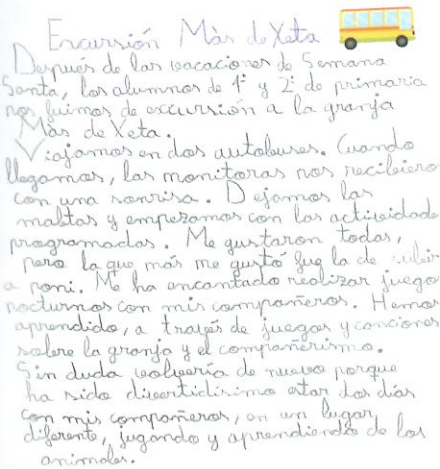 Excursión Màs de Xeta
Después de las vacaciones de Semana
Santa, los alumnos de 1º y 2º de primaria
nos fuimos de excursión a la granja
Màs de Xeta.
Viajamos en dos autobuses. Cuando
llegamos, las monitoras nos recibiero
con una sonrisa. Dejamos las
maltas y empezamos con las actividade
programadas. Me gustaron todas,
pero la que más me gustó fue la de subir
a poni. Me ha encantado realizar juego
nocturnos con mis compañeros. Hemos
aprendido, a través de juegos y canciones
sobre la granja y el compañerismo.
Sin duda volvería de nuevo porque
ha sido divertidísimo estar dos días
con mis compañeros, en un lugar
diferente, jugando y aprendiendo de los
animales.